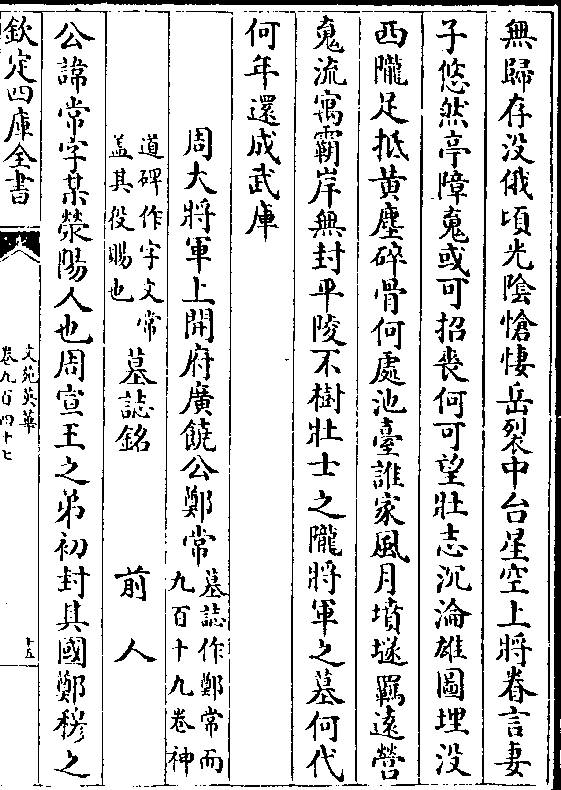 無歸存没俄頃光陰愴悽岳裂中台星空上將眷言妻
子悠然亭障䰟或可招喪何可望壯志沉淪雄圖埋没
西隴足抵黄塵碎骨何處池臺誰家風月墳墓羈遠營
䰟流寓霸岸無封平陵不樹壯士之隴將軍之墓何代
何年還成武庫
周大將軍上開府廣饒公鄭常墓誌作鄭常而
九百十九卷神
道碑作宇文常
盖其役賜也墓誌銘 前人
公諱常字某滎陽人也周宣王之弟初封其國鄭穆之
欽定四庫全書
文苑英華
卷九百四十七
十五